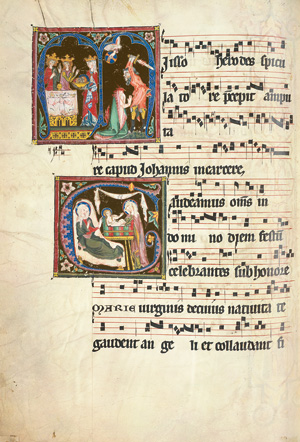 isso herodes spicu
lato re precepit ampu
ta
re capud Johannis in carcere,
audeamus om̄s in
domi no diem festū
celebrantes sub honore
MARIE virginis de cuius nativita te
gaudent an ge li et collaudant fi